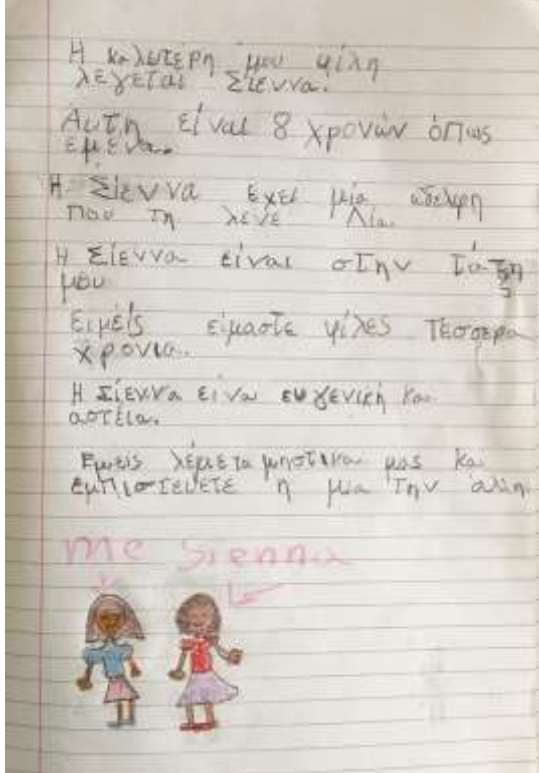 Η καλυτερη μου φίλη
λεγεται Σιεννα.
Αυτη είναι 8 χρονών όπως
εμενα.
Η Σίεννα εχει μία αδελφη
που τη λενε Λία.
Η Σίεννα είναι στην τάξη
μου
Ειμείς είμαστε φίλες τέσσερα
χρονια.
Η Σίεννα είνα ευγενική και
αστεία.
Εμεις λέμε τα μηστικα μας κα
εμπιστευετε η μία την άλλη
me sienna